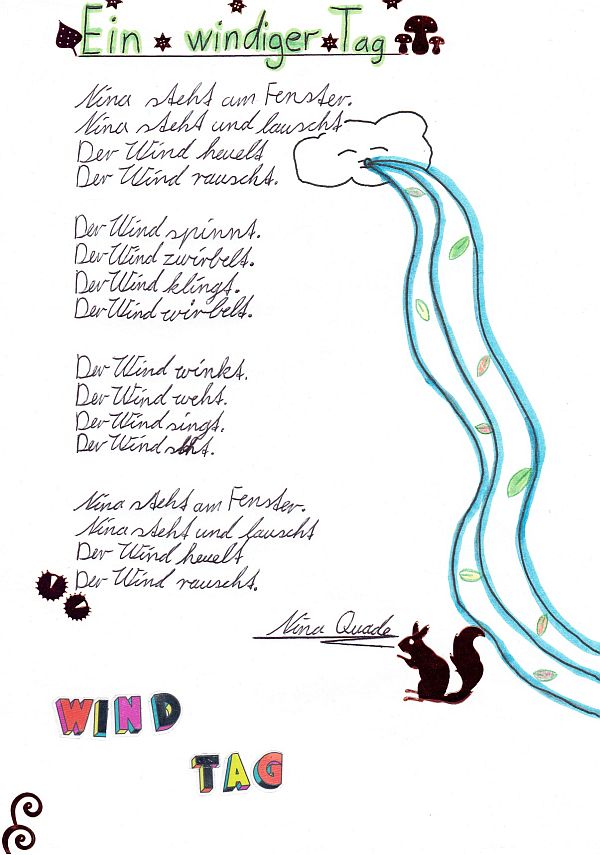 Ein windiger Tag
Nina steht am Fenster.
Nina steht und lauscht
Der Wind heuelt
Der Wind rauscht.
Der Wind spinnt.
Der Wind zwirbelt.
Der Wind klingt.
Der Wind wirbelt.
Der Wind winkt.
Der Wind weht.
Der Wind singt.
Der Wind
Nina steht am Fenster.
Nina steht und lauscht
Der Wind heuelt
Der Wind rauscht.
Nina Quade
WIND
TAG